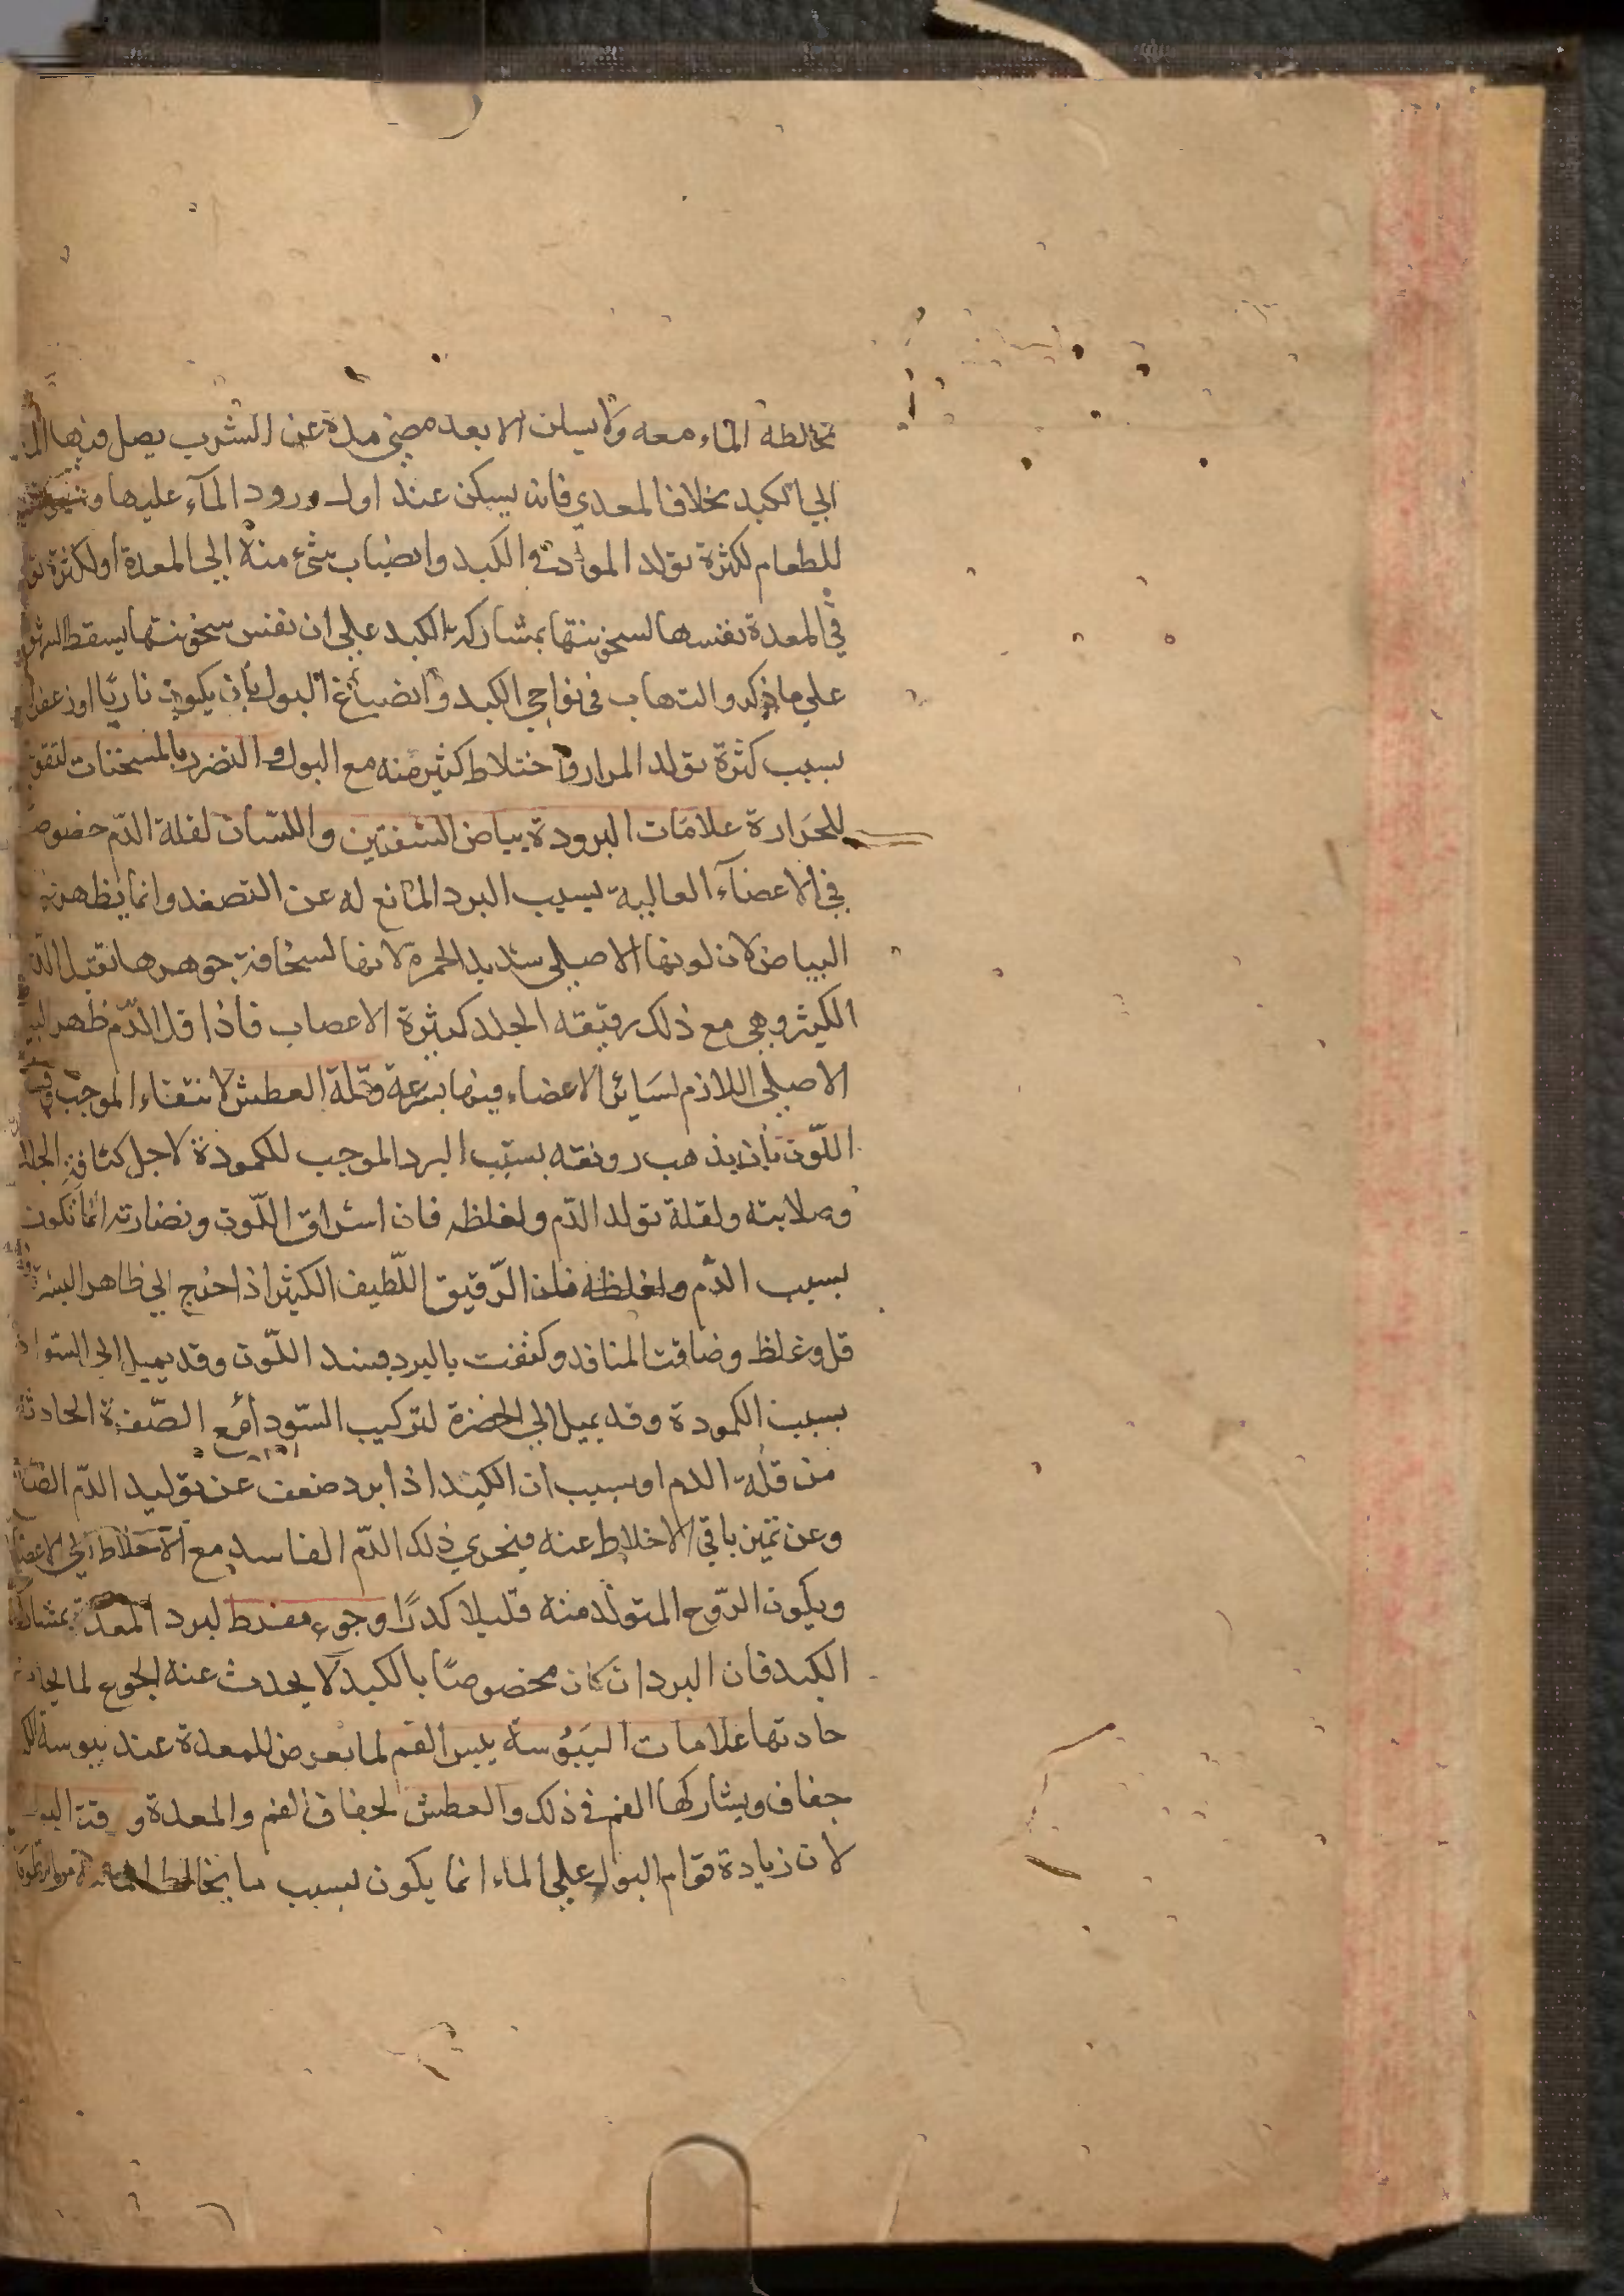 تخالطه الماء معه ولا يسكن الا بعد مضي مدة عن الشرب يصل فيها
الى الكبد بخلاف المعدي فانه يسكن عند اول ورود المآء عليها
للطعام لكثرة تولد المواد في الكبد وانصباب شيء منه الى المعدة او لكثرة
في المعدة نفسها لسخونتها بمشاركة الكبد على ان نفس سخونتها يسقط
على ما ذكر والتهاب في نواحي الكبد وانصباغ البول بان يكون ناريًا او
بسبب كثرة تولد المرار واختلاط كثير منه مع البول والتضرر بالمسخنات
للحرارة علامات البرودة بياض الشفتين واللسان لقلة الدّم خصوصا
في الاعضآء العالية بسبب البرد المانع له عن التصعد وانما يظهر
البياض لان لونها الاصلي شديد الحمرة لانها لسخافة جوهرها تقبل
الكثير وهي مع ذلك رقيقه الجلد كثيرة الاعصاب فاذا قل الدّم ظهر
الاصلي اللازم لسائر الاعضاء فيها بسرعة وقلة العطش لانتفاء الموجب
اللّون بان يذهب رونقه بسبب البرد الموجب للكمودة لاجل كثافة الجلد
وصلابته ولقلة تولد الدّم ولغلظه فان اشراق اللّون ونضارته انما تكون
بسبب الدّم ولغلظه فان الرّقيق اللّطيف الكثير اذا خرج الى ظاهر
قل وغلظ وضاقت المنافد وكثفت بالبرد فسد اللّون وقد يميل الى السّواد
بسبب الكمودة وقد يميل الى الخضرة لتركيب السّودا مع الصّفرة الحادثة
من قلة الدم او بسبب ان الكبد اذا برد ضعف عن توليد الدّم
وعن تميز باقي الاخلاط عنه فيجري ذلك الدّم الفاسد مع الاخلاط الى
ويكون الرّوح المتولد منه قليلا كدرًا وجوع مفرط لبرد المعدة
الكبد فان البرد ان كان مخصوصًا بالكبد لا يحدث عنه الجوع
حادتها علامات اليبوسة يبس الفم لما يعرض للمعدة عند يبوسة
جفاف ويشاركها الفم في ذلك والعطش لجفاف الفم والمعدة ورقة
لان زيادة قوام البول على الماء انما يكون بسبب ما يخالط